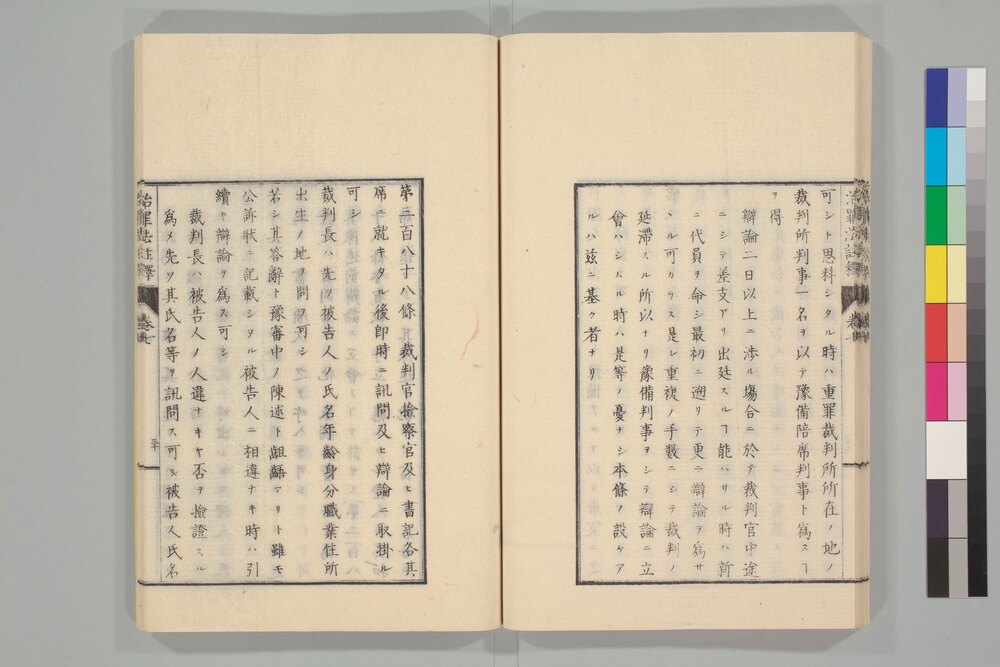 治罪法註釋
可シト思料シタル時ハ重罪裁判所所在ノ地ノ
裁判所判事一名ヲ以テ豫備陪席判事ト爲スヿ
ヲ得
辯論二日以上ニ渉ル塲合ニ於テ裁判官中途
ニシテ差支アリ出廷スルヿ能ハサル時ハ新
ニ代員ヲ命シ最初ニ遡リテ更ニ辯論ヲ爲サ
ヽル可カラス是レ重複ノ手數ニシテ裁判ノ
延滯スル所以ナリ豫備判事ヲシテ辯論ニ立
會ハシムル時ハ是等ノ憂ナシ本條ノ設ケア
ルハ玆ニ基ク者ナリ
第三百八十八條 裁判官撿察官及ヒ書記各其
席ニ就キタル後即時ニ訊問及ヒ辯論ニ取掛ル
可シ
裁判長ハ先ツ被告人ノ氏名年齡身分職業住所
出生ノ地ヲ問フ可シ
若シ其答辭ト豫審中ノ陳述ト齟齬アリト雖モ
公訴狀ニ記載シタル被告人ニ相違ナキ時ハ引
續キ辯論ヲ爲ス可シ
裁判長ハ被告人ノ人違ナキヤ否ヲ撿證スル
爲メ先ツ其氏名等ヲ訊問ス可シ被告人氏名
治罪法註釋
卷七